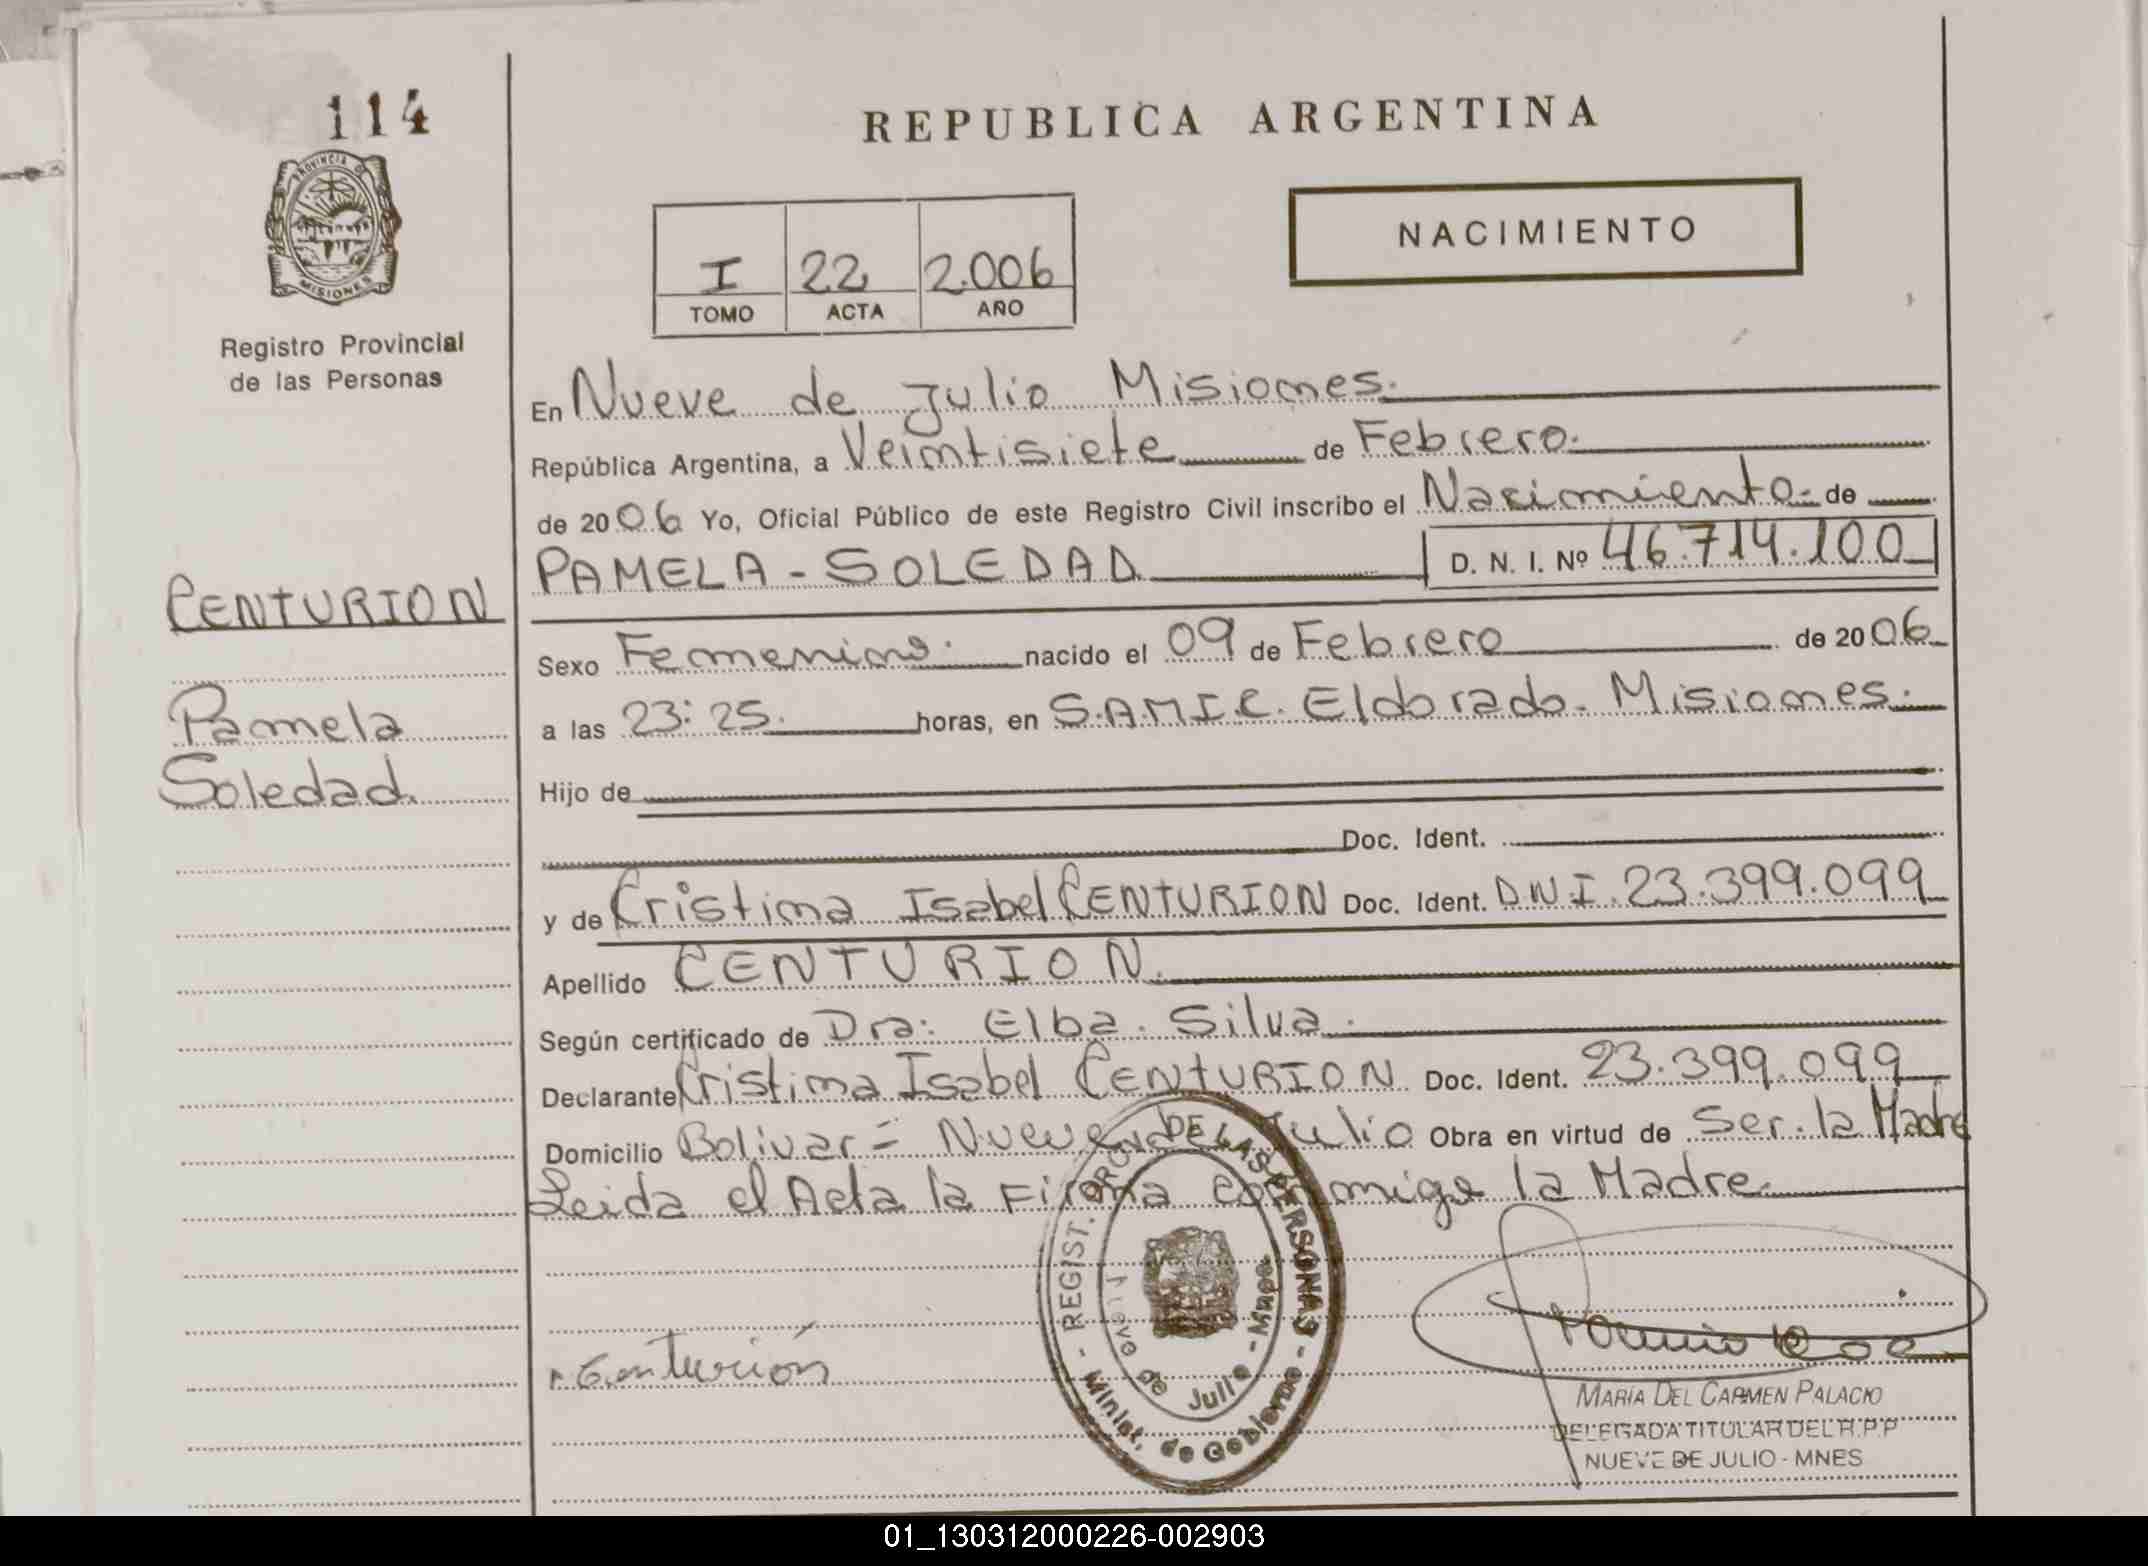 114
PROVINCIA DE
MISIONES
Registro Provincial
de las Personas
CENTURION
Pamela
Soledad.
REPUBLICA ARGENTINA
NACIMIENTO
I 22 2.006
TOMO ACTA AÑO
En Nueve de Julio Misiones.
República Argentina, a Veintisiete de Febrero.
de 2006 Yo, Oficial Público de este Registro Civil inscribo el Nacimiento- de
PAMELA - SOLEDAD D. N. I. Nº 46.714.100
Sexo Femenino. nacido el 09 de Febrero de 2006
a las 23:25. horas, en S.A.M.I.C. Eldorado. Misiones.
Hijo de
Doc. Ident.
y de Cristina Isabel CENTURION Doc. Ident. D.N.I. 23.399.099
Apellido CENTURION.
Según certificado de Dra: Elba. Silva.
Declarante Cristina Isabel CENTURION Doc. Ident. 23.399.099
Domicilio Bolivar = Nueve de Julio Obra en virtud de Ser. la Madre
Leida el Acta la Firma conmigo la Madre.
REGIST. PROV. DE LAS PERSONAS
Nueve de Julio - Mnes.
- Minist. de Gobierno -
Centurión
MARÍA DEL CARMEN PALACIO
DELEGADA TITULAR DEL R.P.P
NUEVE DE JULIO - MNES
01_130312000226-002903